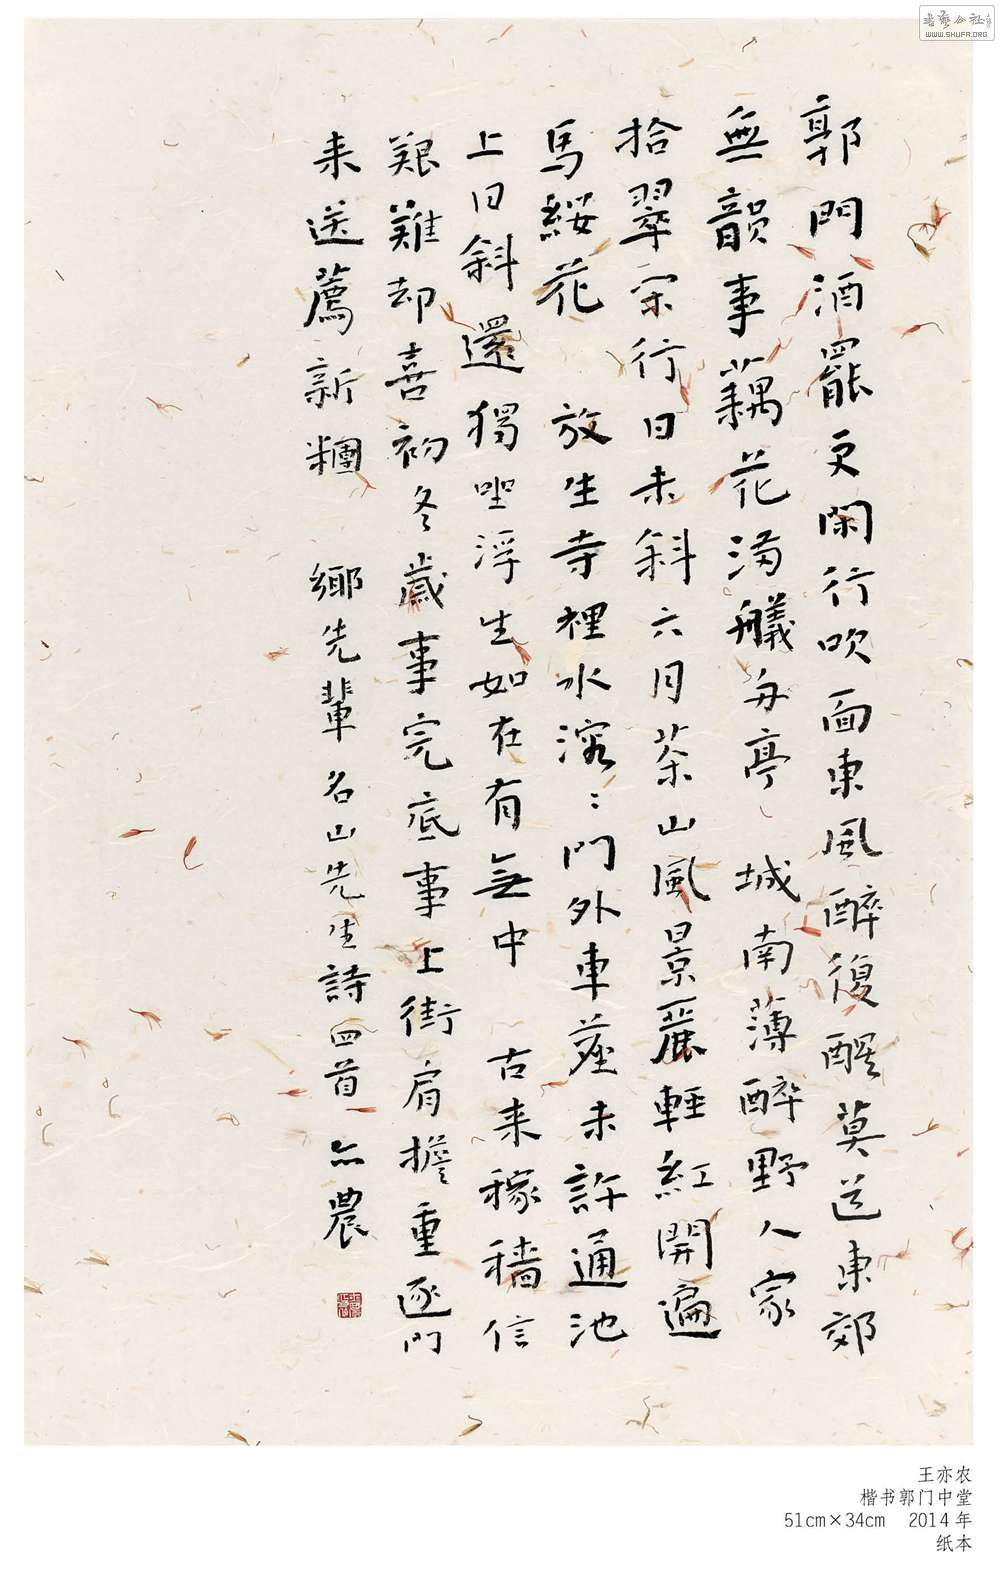 郭門酒罷更閑行吹面東風醉復醒莫道東郊
無韻事藕花滿艤舟亭 城南薄醉野人家
拾翠宗行日未斜六月茶山風景麗輕紅開遍
馬綬花 放生寺裡水溶〻門外車塵未許通池
上日斜還獨坐浮生如在有無中 古来稼穡信
艱難却喜初冬歲事完底事上街肩擔重逐門
来送薦新糰 鄉先輩名山先生詩四首 亦農
書藝公社
WWW.SHUFA.ORG
王亦农
楷书郭门中堂
51cm×34cm 2014年
纸本